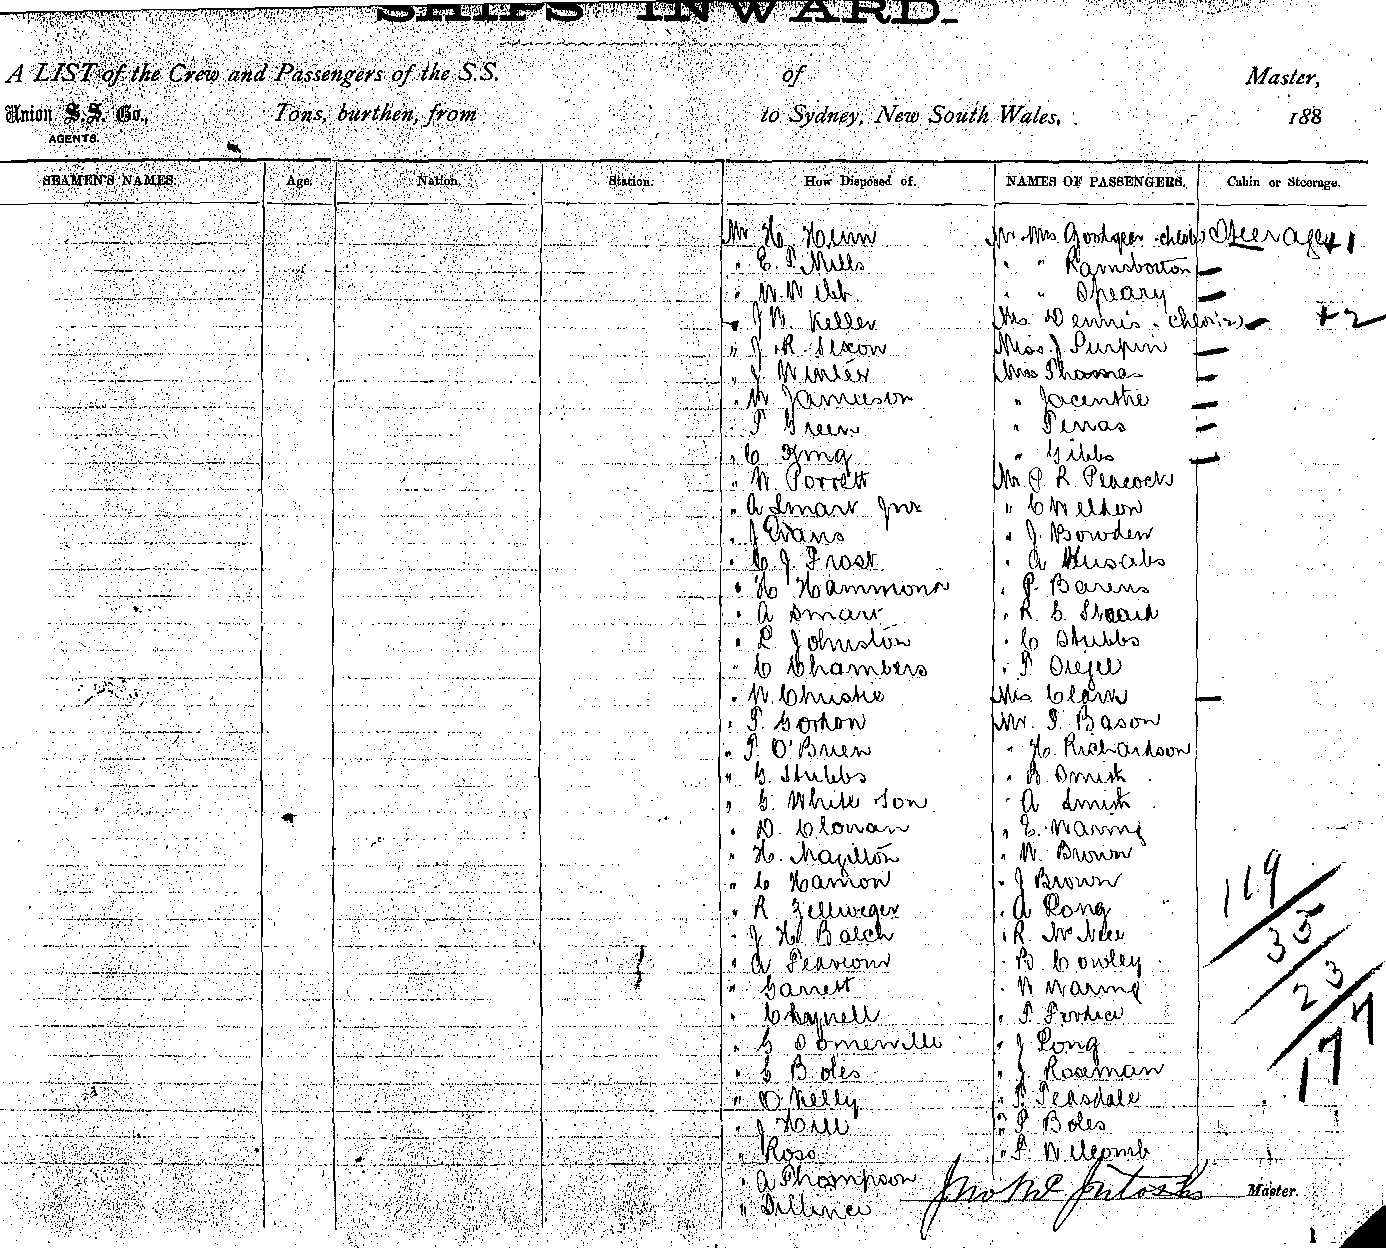 SHIPS INWARD.
A LIST of the Crew and Passengers of the S.S. of Master,
Union S.S. Co., Tons, burthen, from to Sydney, New South Wales, 188
AGENTS.
SEAMEN'S NAMES. Age. Nation. Station. How Disposed of. NAMES OF PASSENGERS. Cabin or Steerage.
Mr H. Hunn Mr Mrs Steerage +1
" E. P. Mills " " Ramsbottom —
" W. Webb " " Speary —
" J W. Keller Mrs Dennis — +2
" J. R. Sixon Miss J Turpin —
" J. Winter Mrs Thomas —
" W. Jamieson " Jacenthe —
" T Green " Perras —
" C King " Gibbs —
" W. Porrett Mr P R Peacock
" A Smart Jnr " C Weldon
" J Evans " J. Bowden
" C J. Frost " A
" H Hammond " P. Barens
" A Smart " R. G.
" L Johnston " C Stubbs
" C Chambers " T
" W. Christie Mrs Clark —
" T. Gordon Mr. T. Bason
" T. O'Brien " H. Richardson
" G. Stubbs " B Smith
" G. White Son " A Smith
" D. Clonan " E. Waring
" H. Magilton " W. Brown
" C Hamon " J Brown 119
" R Zellweger " A Long
" J H. Balch " R. McNee 35
" A " B Cowley
" Garrett " W Waring 23
" Chynell " T.
" G Somerville " J Long 177
" G Boles " J. Roseman
" O Kelly " T Teasdale
" J Hill " P Boles
" Ross " T Welcomb
" A Thompson Jno McIntosh Master.
"